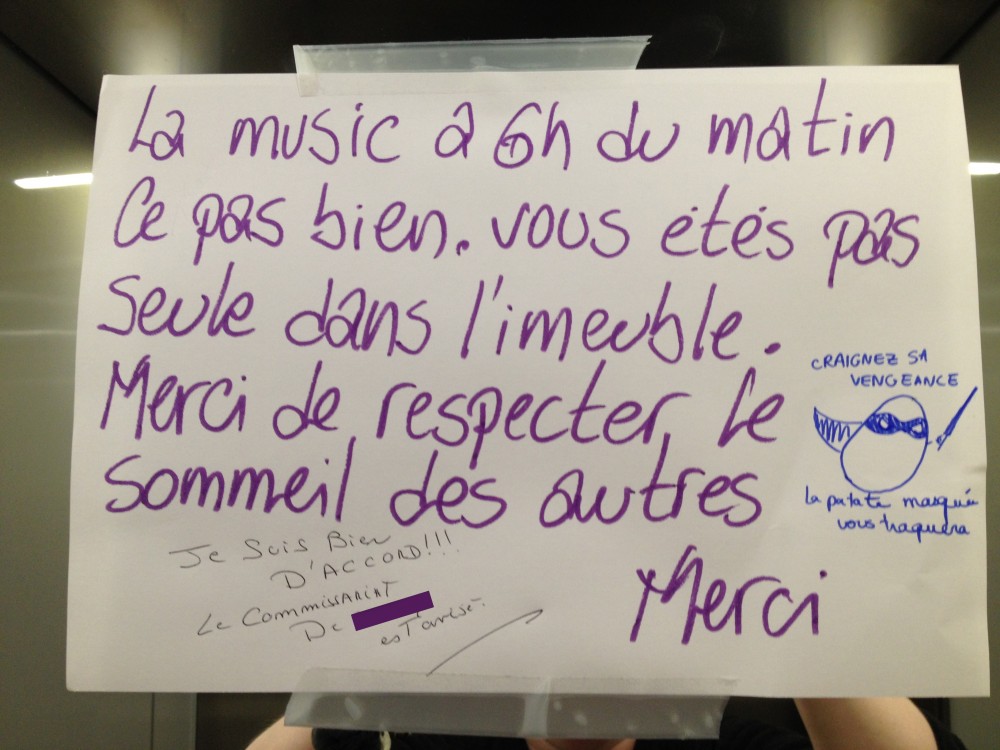 La music à 6h du matin
Ce pas bien. vous étés pas
seule dans l'imeuble.
Merci de respecter le
sommeil des autres
Merci
CRAIGNEZ SA
VENGEANCE
la patate masquée
vous traquera
Je Suis Bien
D'ACCORD!!!
Le COMMISSARIAT
De
est avisé.